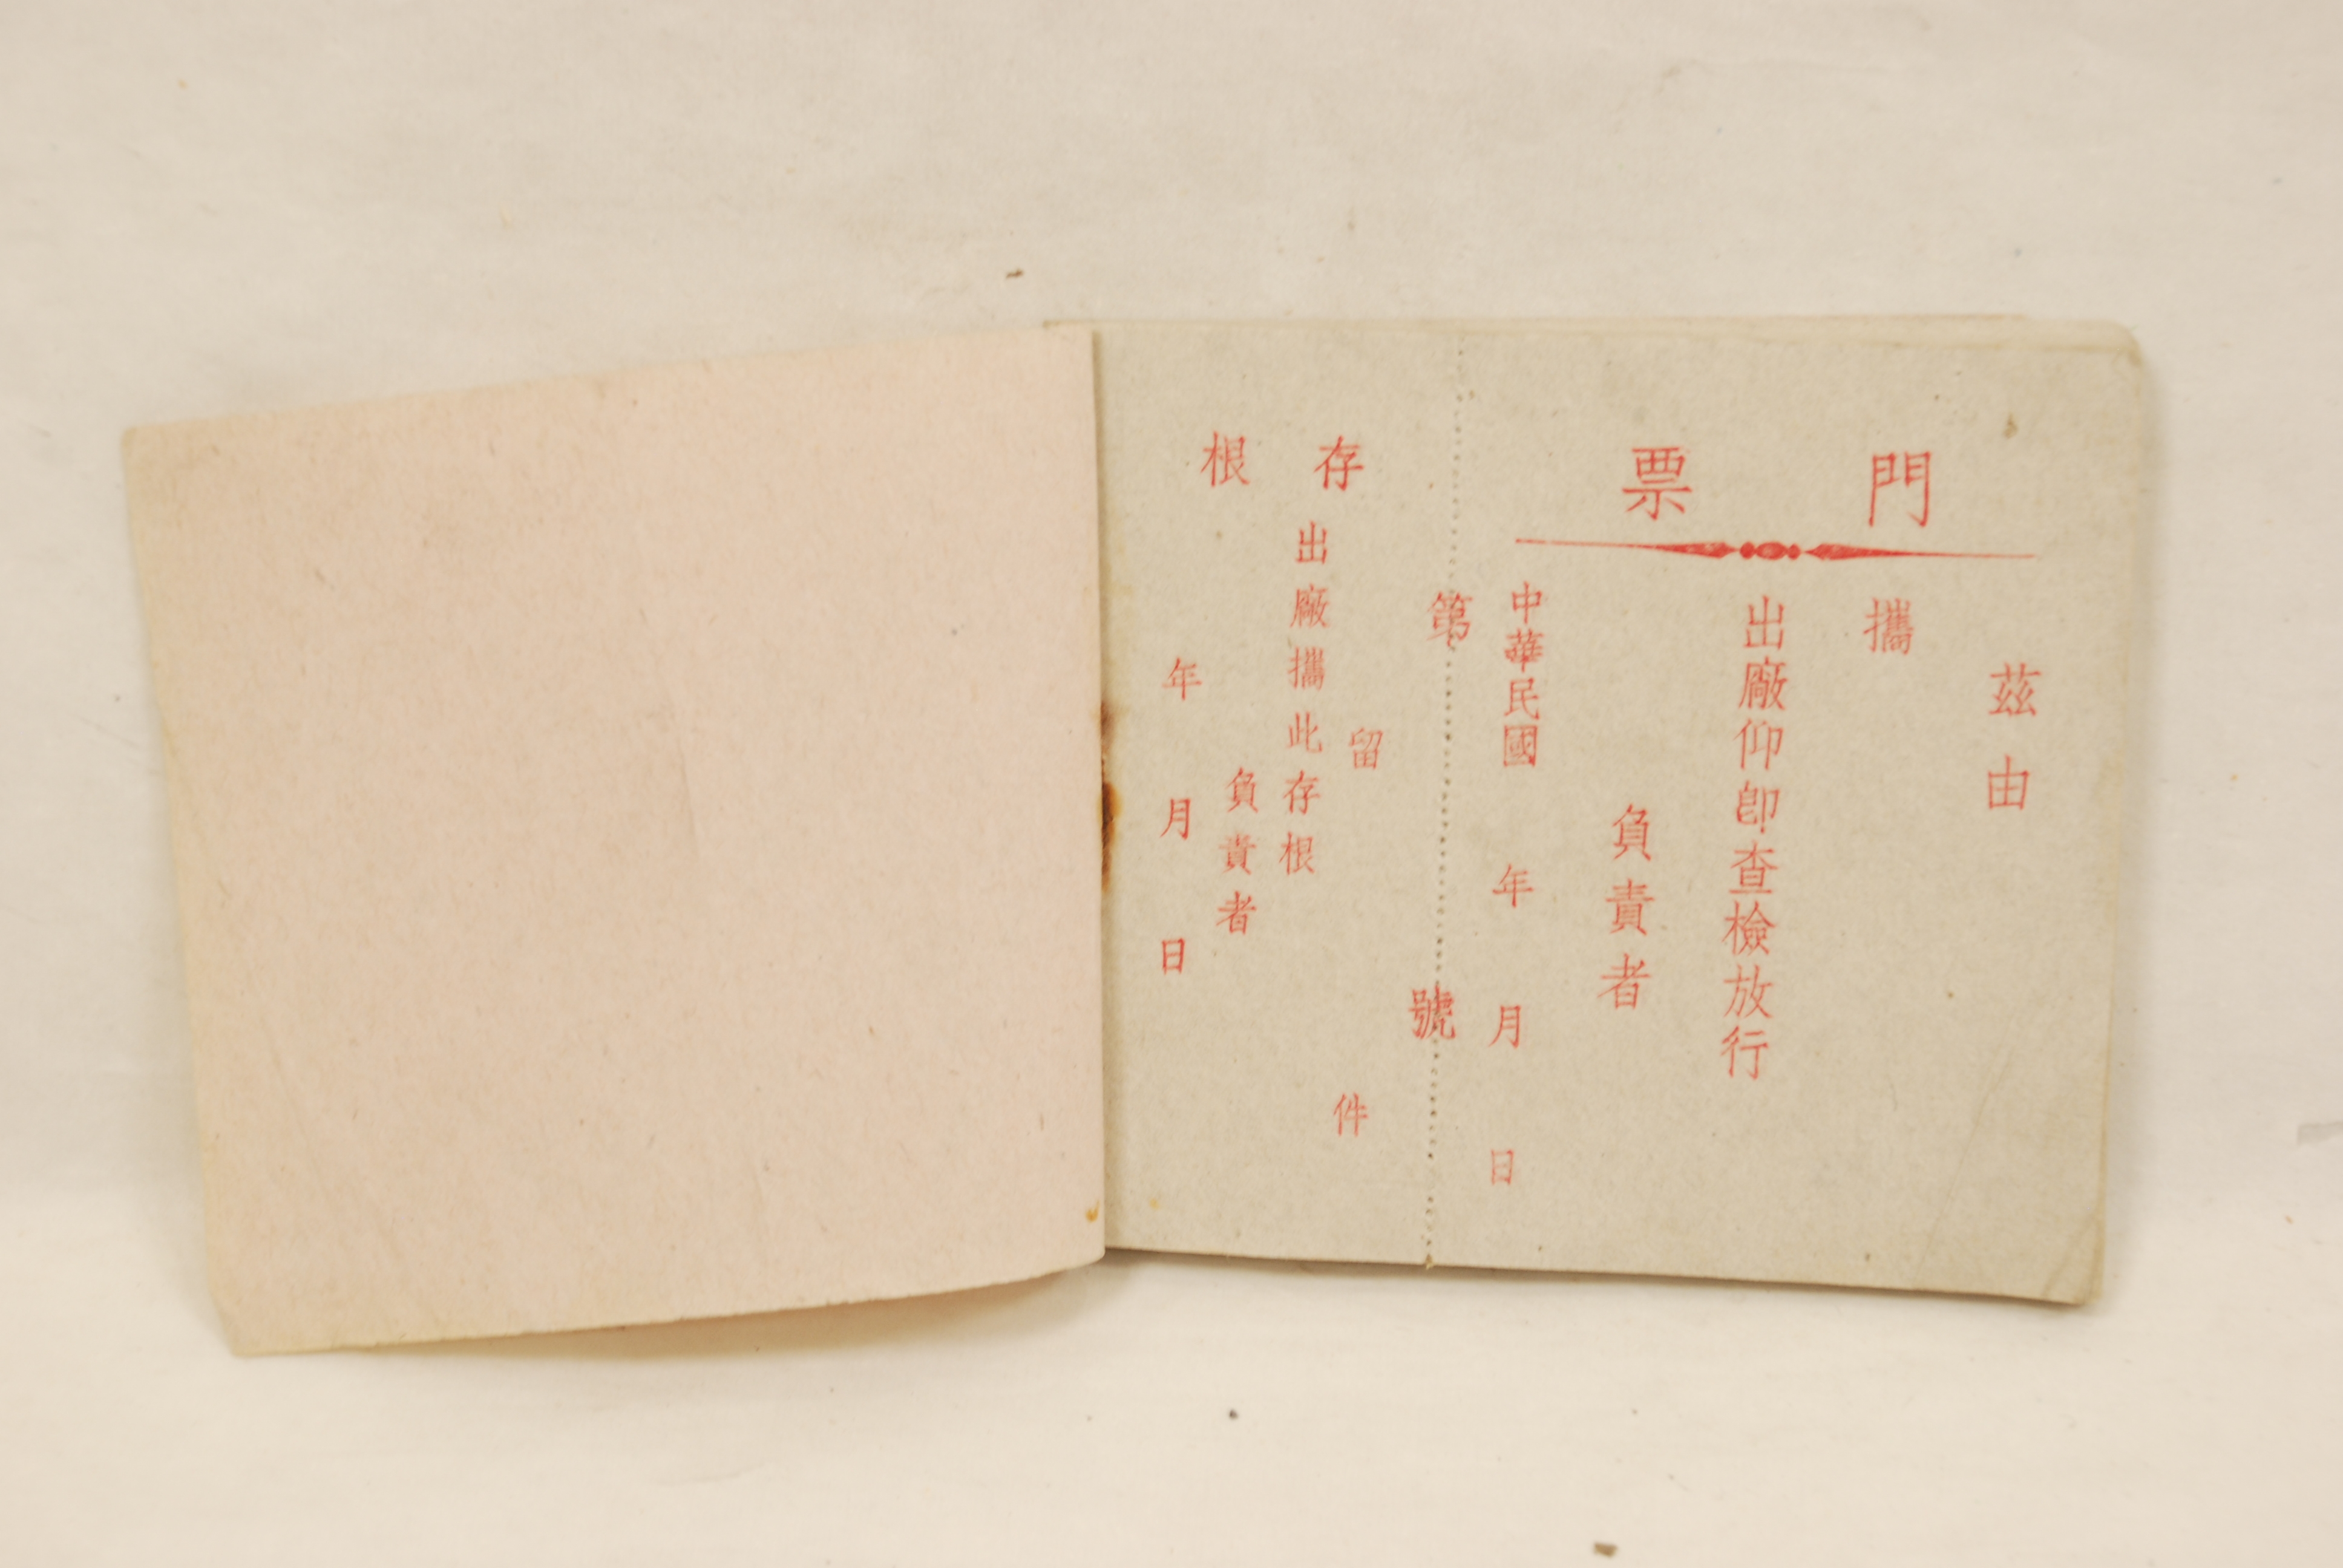 門票
茲由
攜
出廠仰卽查檢放行
負責者
中華民國 年 月 日
第 號
存根
留 件
出廠攜此存根
負責者
年 月 日